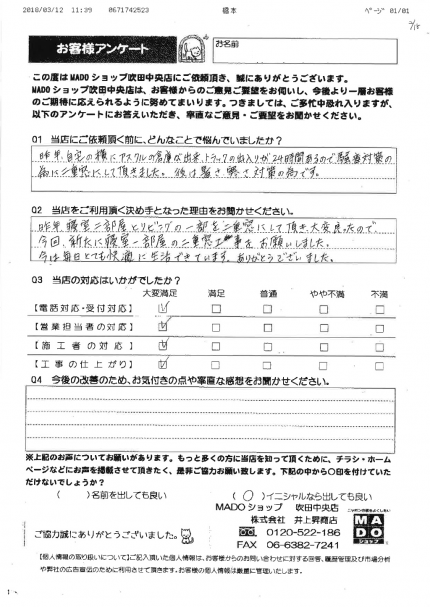 2018/03/12 11:39 0671742523 橋本 ページ 01/01
お客様アンケート
お名前
この度はMADOショップ吹田中央店にご依頼頂き、誠にありがとうございます。
MADOショップ吹田中央店は、お客様からのご意見ご要望をお伺いし、今後より一層お客様
のご期待に応えられるように努めてまいります。つきましては、ご多忙中恐れ入りますが、
以下のアンケートにお答えいただき、率直なご意見・ご要望をお聞かせください。
Q1 当店にご依頼頂く前に、どんなことで悩んでいましたか?
昨年、自宅の横にアスクルの倉庫が出来、トラックの出入りが24時間あるので騒音対策の
為に二重窓にして頂きました。後は暑さ寒さ対策の為です。
Q2 当店をご利用頂く決め手となった理由をお聞かせください。
昨年寝室二部屋とリビングの一部を二重窓にして頂き、大変良かったので
今回、新たに寝室一部屋の二重窓工事をお願いしました。
今は毎日とても快適に生活できています。ありがとうございました。
Q3 当店の対応はいかがでしたか?
大変満足 満足 普通 やや不満 不満
【電話対応・受付対応】
【営業担当者の対応】
【施工者の対応】
【工事の仕上がり】
Q4 今後の改善のため、お気付きの点や率直な感想をお聞かせください。
※上記のお声についてお願いがあります。もっと多くの方に当店を知って頂くために、チラシ・ホーム
ページなどにお声を掲載させて頂きたく、是非ご協力お願い致します。下記の中から〇印を付けていた
だけないでしょうか?
( )名前を出しても良い (〇)イニシャルなら出しても良い
MADOショップ 吹田中央店
株式会社 井上昇商店
0120-522-186
FAX 06-6382-7241
ニッポンの窓をよくしたい
MADO
ショップ
ご協力誠にありがとうございました。
【個人情報の取り扱いについて】ご記入頂いた個人情報は、お客様からのお問い合わせに対する回答、履歴管理及び市場分析
や弊社の広告宣伝のために利用させて頂きます。お客様の個人情報は厳重に管理いたします。